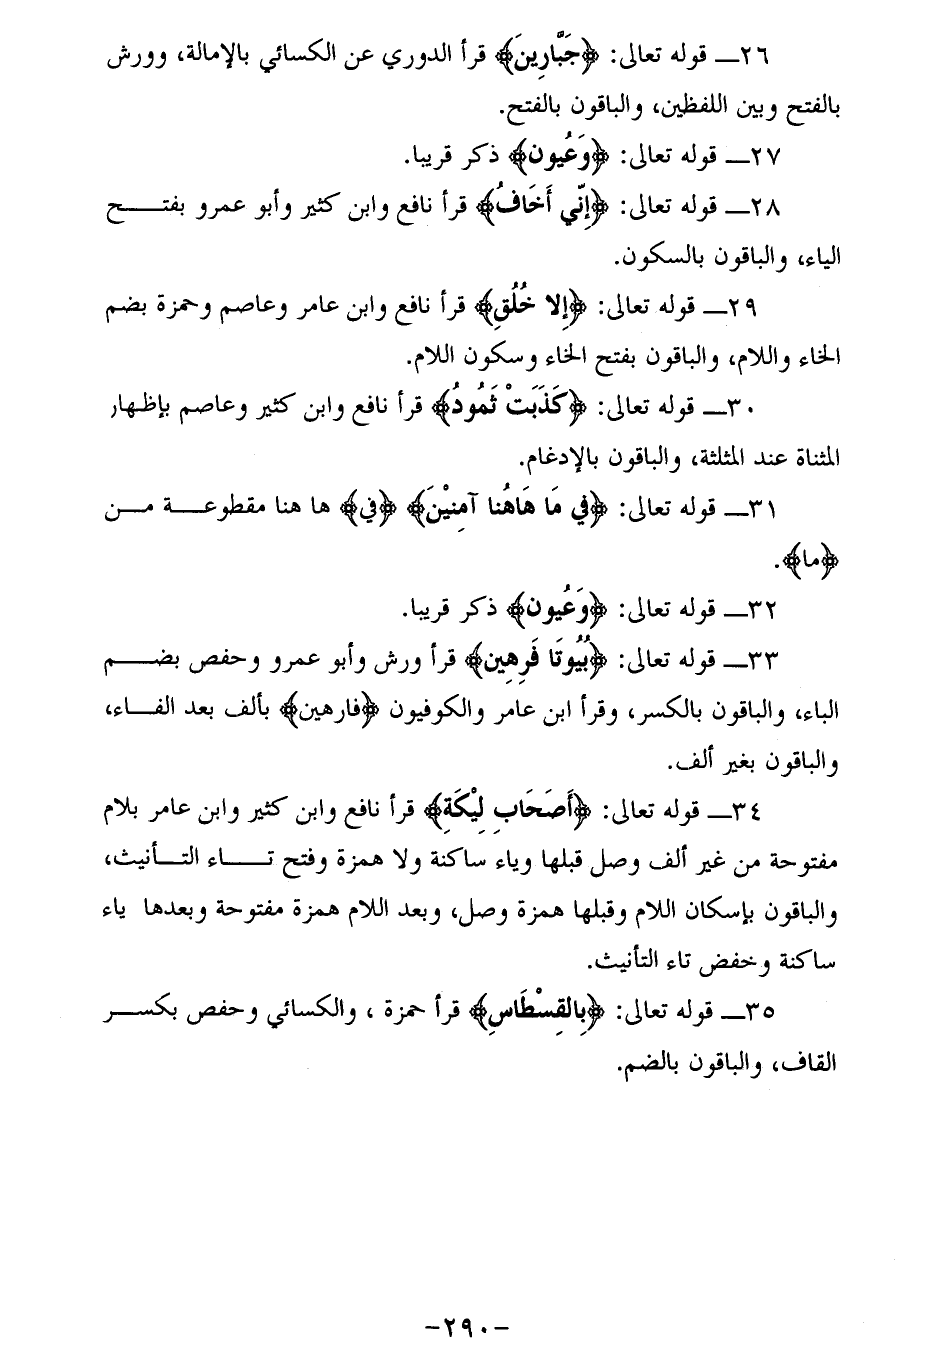 ٢٦ــ قوله تعالى: ﴿جَبَّارِينَ﴾ قرأ الدوري عن الكسائي بالإمالة، وورش
بالفتح وبين اللفظين، والباقون بالفتح.
٢٧ــ قوله تعالى: ﴿وَعُيون﴾ ذكر قريبا.
٢٨ــ قوله تعالى: ﴿إنِّي أَخَافُ﴾ قرأ نافع وابن كثير وأبو عمرو بفتـــــح
الياء، والباقون بالسكون.
٢٩ــ قوله تعالى: ﴿إلا خُلُقِ﴾ قرأ نافع وابن عامر وعاصم وحمزة بضم
الخاء واللام، والباقون بفتح الخاء وسكون اللام.
٣٠ــ قوله تعالى: ﴿كَذَبَتْ ثَمُودُ﴾ قرأ نافع وابن كثير وعاصم بإظهار
المثناة عند المثلثة، والباقون بالإدغام.
٣١ــ قوله تعالى: ﴿في مَا هَاهُنا آمِنيْنَ﴾ ﴿في﴾ ها هنا مقطوعـــة مـــن
﴿ما﴾.
٣٢ــ قوله تعالى: ﴿وَعُيون﴾ ذكر قريبا.
٣٣ــ قوله تعالى: ﴿بُيُوتَا فَرِهِين﴾ قرأ ورش وأبو عمرو وحفص بضـــم
الباء، والباقون بالكسر، وقرأ ابن عامر والكوفيون ﴿فارهين﴾ بألف بعد الفـــاء،
والباقون بغير ألف.
٣٤ــ قوله تعالى: ﴿أَصَحَابِ لِيْكَةِ﴾ قرأ نافع وابن كثير وابن عامر بلام
مفتوحة من غير ألف وصل قبلها وياء ساكنة ولا همزة وفتح تـــاء التـــأنيث،
والباقون بإسكان اللام وقبلها همزة وصل، وبعد اللام همزة مفتوحة وبعدها ياء
ساكنة وخفض تاء التأنيث.
٣٥ــ قوله تعالى: ﴿بِالقِسْطَاسِ﴾ قرأ حمزة ، والكسائي وحفص بكســـر
القاف، والباقون بالضم.
-٢٩٠-